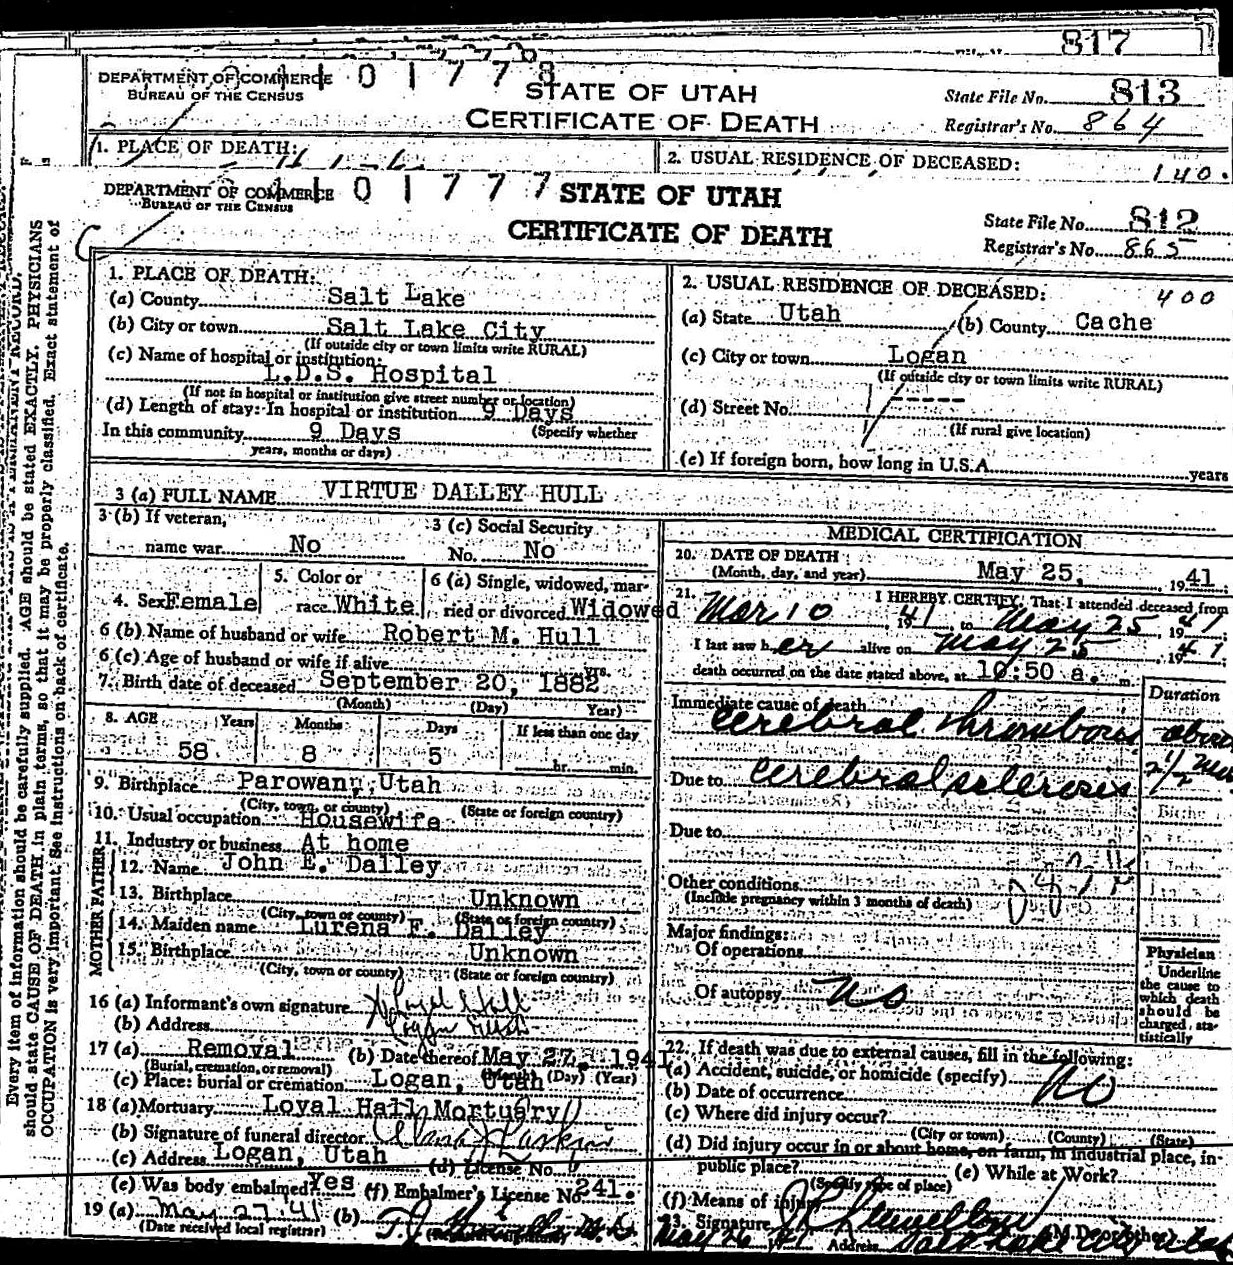 817
DEPARTMENT OF COMMERCE
BUREAU OF THE CENSUS
1101778
STATE OF UTAH
CERTIFICATE OF DEATH
State File No. 813
Registrar's No. 864
1. PLACE OF DEATH:
2. USUAL RESIDENCE OF DECEASED:
140.
DEPARTMENT OF COMMERCE
BUREAU OF THE CENSUS
1101777
STATE OF UTAH
CERTIFICATE OF DEATH
State File No. 812
Registrar's No. 865
1. PLACE OF DEATH:
(a) County Salt Lake
(b) City or town Salt Lake City
(If outside city or town limits write RURAL)
(c) Name of hospital or institution:
L.D.S. Hospital
(If not in hospital or institution give street number or location)
(d) Length of stay: In hospital or institution 9 Days
In this community 9 Days (Specify whether
years, months or days)
2. USUAL RESIDENCE OF DECEASED: 400
(a) State Utah (b) County Cache
(c) City or town Logan
(If outside city or town limits write RURAL)
(d) Street No. -----
(If rural give location)
(e) If foreign born, how long in U.S.A. years
3 (a) FULL NAME VIRTUE DALLEY HULL
3 (b) If veteran,
name war No
3 (c) Social Security
No. No
4. Sex Female
5. Color or
race White
6 (a) Single, widowed, mar-
ried or divorced Widowed
6 (b) Name of husband or wife Robert M. Hull
6 (c) Age of husband or wife if alive yrs.
7. Birth date of deceased September 20, 1882
(Month) (Day) Year)
8. AGE Years Months Days If less than one day
58 8 5 hr. min.
9. Birthplace Parowan, Utah
(City, town, or county) (State or foreign country)
10. Usual occupation Housewife
11. Industry or business At home
FATHER
12. Name John E. Dalley
13. Birthplace Unknown
(City, town or county) (State or foreign country)
MOTHER
14. Maiden name Lurena F. Dalley
15. Birthplace Unknown
(City, town or county) (State or foreign country)
16 (a) Informant's own signature
(b) Address Logan Utah
17 (a) Removal (b) Date thereof May 27, 1941
(Burial, cremation, or removal) (Month) (Day) (Year)
(c) Place: burial or cremation Logan, Utah
18 (a) Mortuary Loyal Hall Mortuary
(b) Signature of funeral director
(c) Address Logan, Utah (d) License No.
(e) Was body embalmed? Yes (f) Embalmer's License No. 241.
19 (a) May 27, 41 (b)
(Date received local registrar)
MEDICAL CERTIFICATION
20. DATE OF DEATH
(Month, day, and year) May 25, 1941.
21. I HEREBY CERTIFY, That I attended deceased from
Mar 10, 1941 to May 25, 1941;
I last saw her alive on May 25, 1941
death occurred on the date stated above, at 10:50 a. m.
Duration
Immediate cause of death
Cerebral thrombosis about
2 1/2
Due to Cerebral sclerosis
Due to
Other conditions
(Include pregnancy within 3 months of death)
Major findings:
Of operations
Of autopsy no
Physician
Underline
the cause to
which death
should be
charged, sta-
tistically
22. If death was due to external causes, fill in the following:
(a) Accident, suicide, or homicide (specify) No
(b) Date of occurrence
(c) Where did injury occur?
(City or town) (County) (State)
(d) Did injury occur in or about home, on farm, in industrial place, in
public place? (e) While at Work?
(Specify type of place)
(f) Means of injury
23. Signature (M.D. or other)
May 26 41 Address Salt Lake City Utah
Every item of information should be carefully supplied. AGE should be stated EXACTLY. PHYSICIANS
should state CAUSE OF DEATH in plain terms, so that it may be properly classified. Exact statement of
OCCUPATION is very important. See instructions on back of certificate.